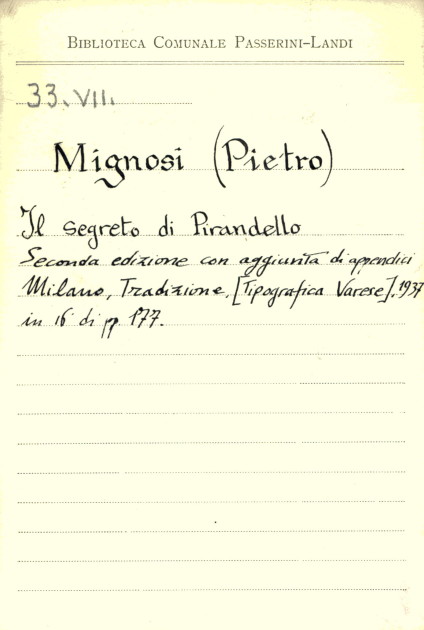 BIBLIOTECA COMUNALE PASSERINI-LANDI
33.VII.
Mignosi (Pietro)
Il segreto di Pirandello
Seconda edizione con aggiunta di appendici
Milano, Tradizione, [Tipografica Varese], 1937
in 16° di pp 177.